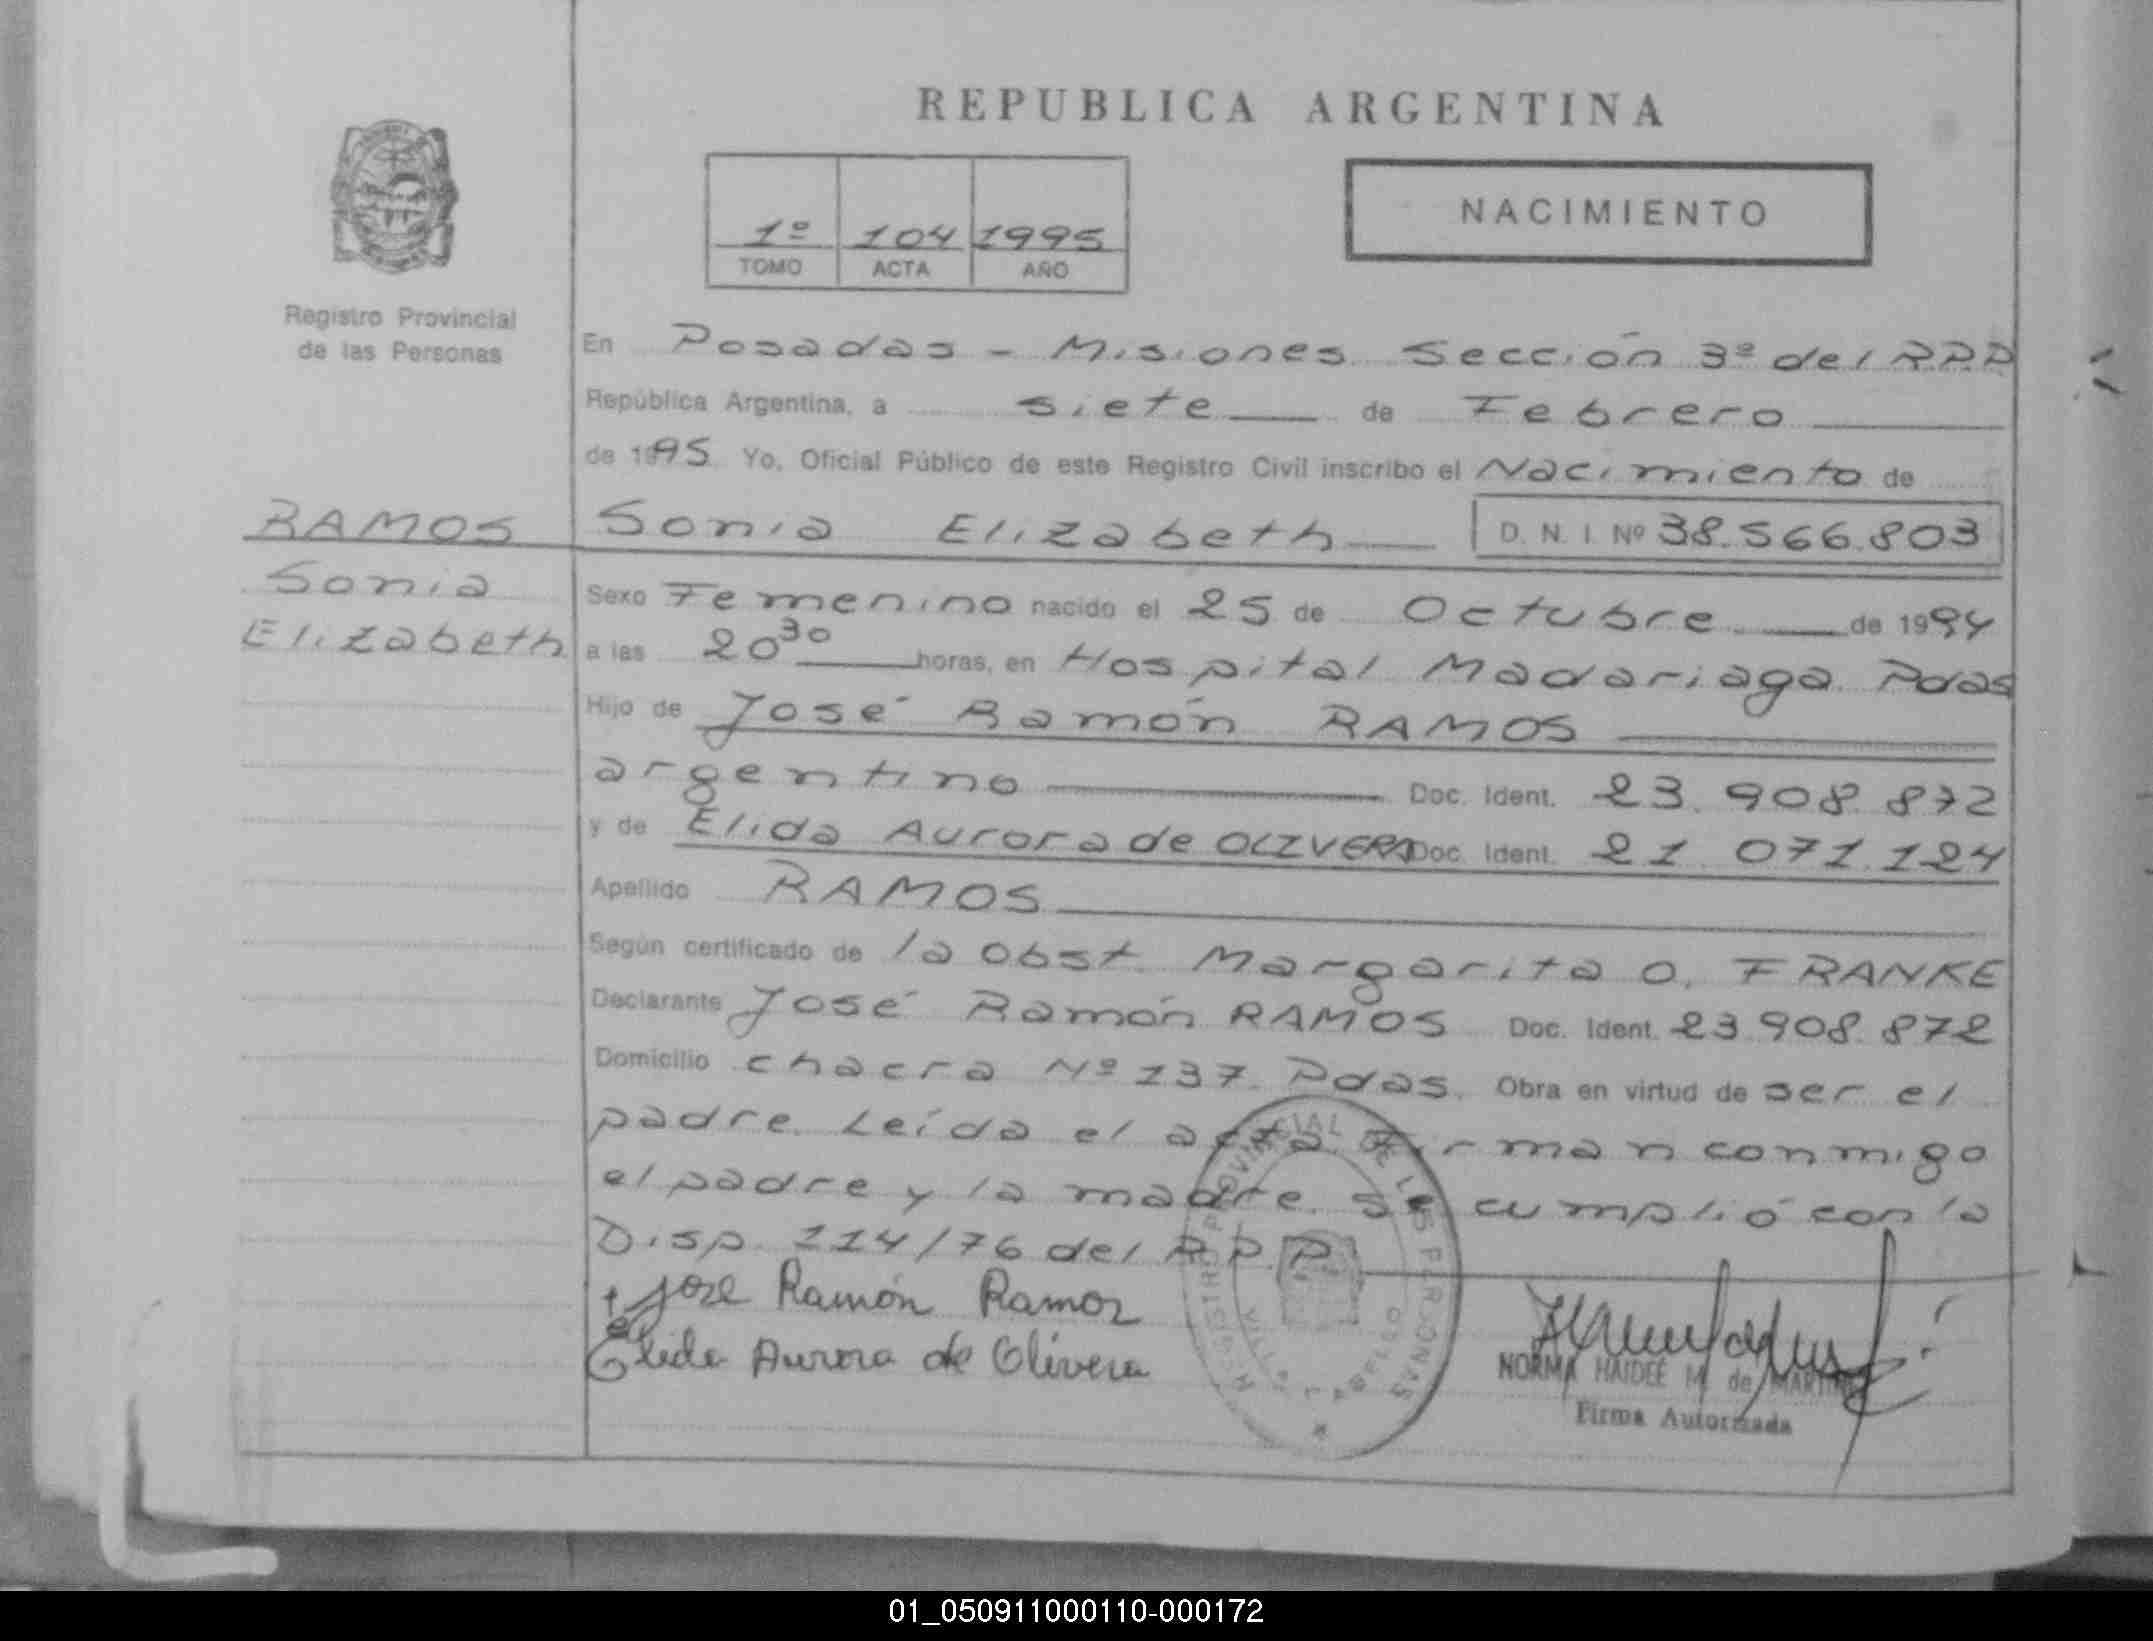 REPUBLICA ARGENTINA
1º 104 1995
TOMO ACTA AÑO
NACIMIENTO
Registro Provincial
de las Personas
En Posadas - Misiones Sección 3ª del R.P.P
República Argentina, a siete de Febrero
de 1995 Yo, Oficial Público de este Registro Civil inscribo el Nacimiento de
RAMOS
Sonia
Elizabeth
Sonia Elizabeth D. N. I. Nº 38.566.803
Sexo Femenino nacido el 25 de Octubre de 1994
a las 20 30 horas, en Hospital Madariaga Pdas
Hijo de José Ramón RAMOS
argentino Doc. Ident. 23.908.872
y de Elida Aurora de OLIVERA Doc. Ident. 21.071.124
Apellido RAMOS
Según certificado de la Obst. Margarita O. FRANKE
Declarante José Ramón RAMOS Doc. Ident. 23.908.872
Domicilio chacra Nº 137 Pdas. Obra en virtud de ser el
padre. Leída el acta firman conmigo
el padre y la madre. Se cumplió con la
Disp. 114/76 del R.P.P.
José Ramón Ramos
Elida Aurora de Olivera
REGISTRO PROVINCIAL DE LAS PERSONAS
NORMA HAIDEE M. de
Firma Autorizada
01_050911000110-000172